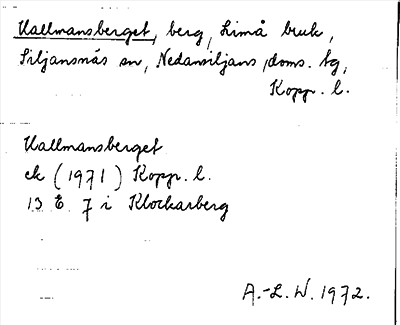 Kallmansberget, berg, Limå bruk,
Siljansnäs sn, Nedansiljans doms. tg,
Kopp. l.
Kallmansberget
ek (1971) Kopp. l.
13 E 7 i Klockarberg
A.-L. W. 1972.